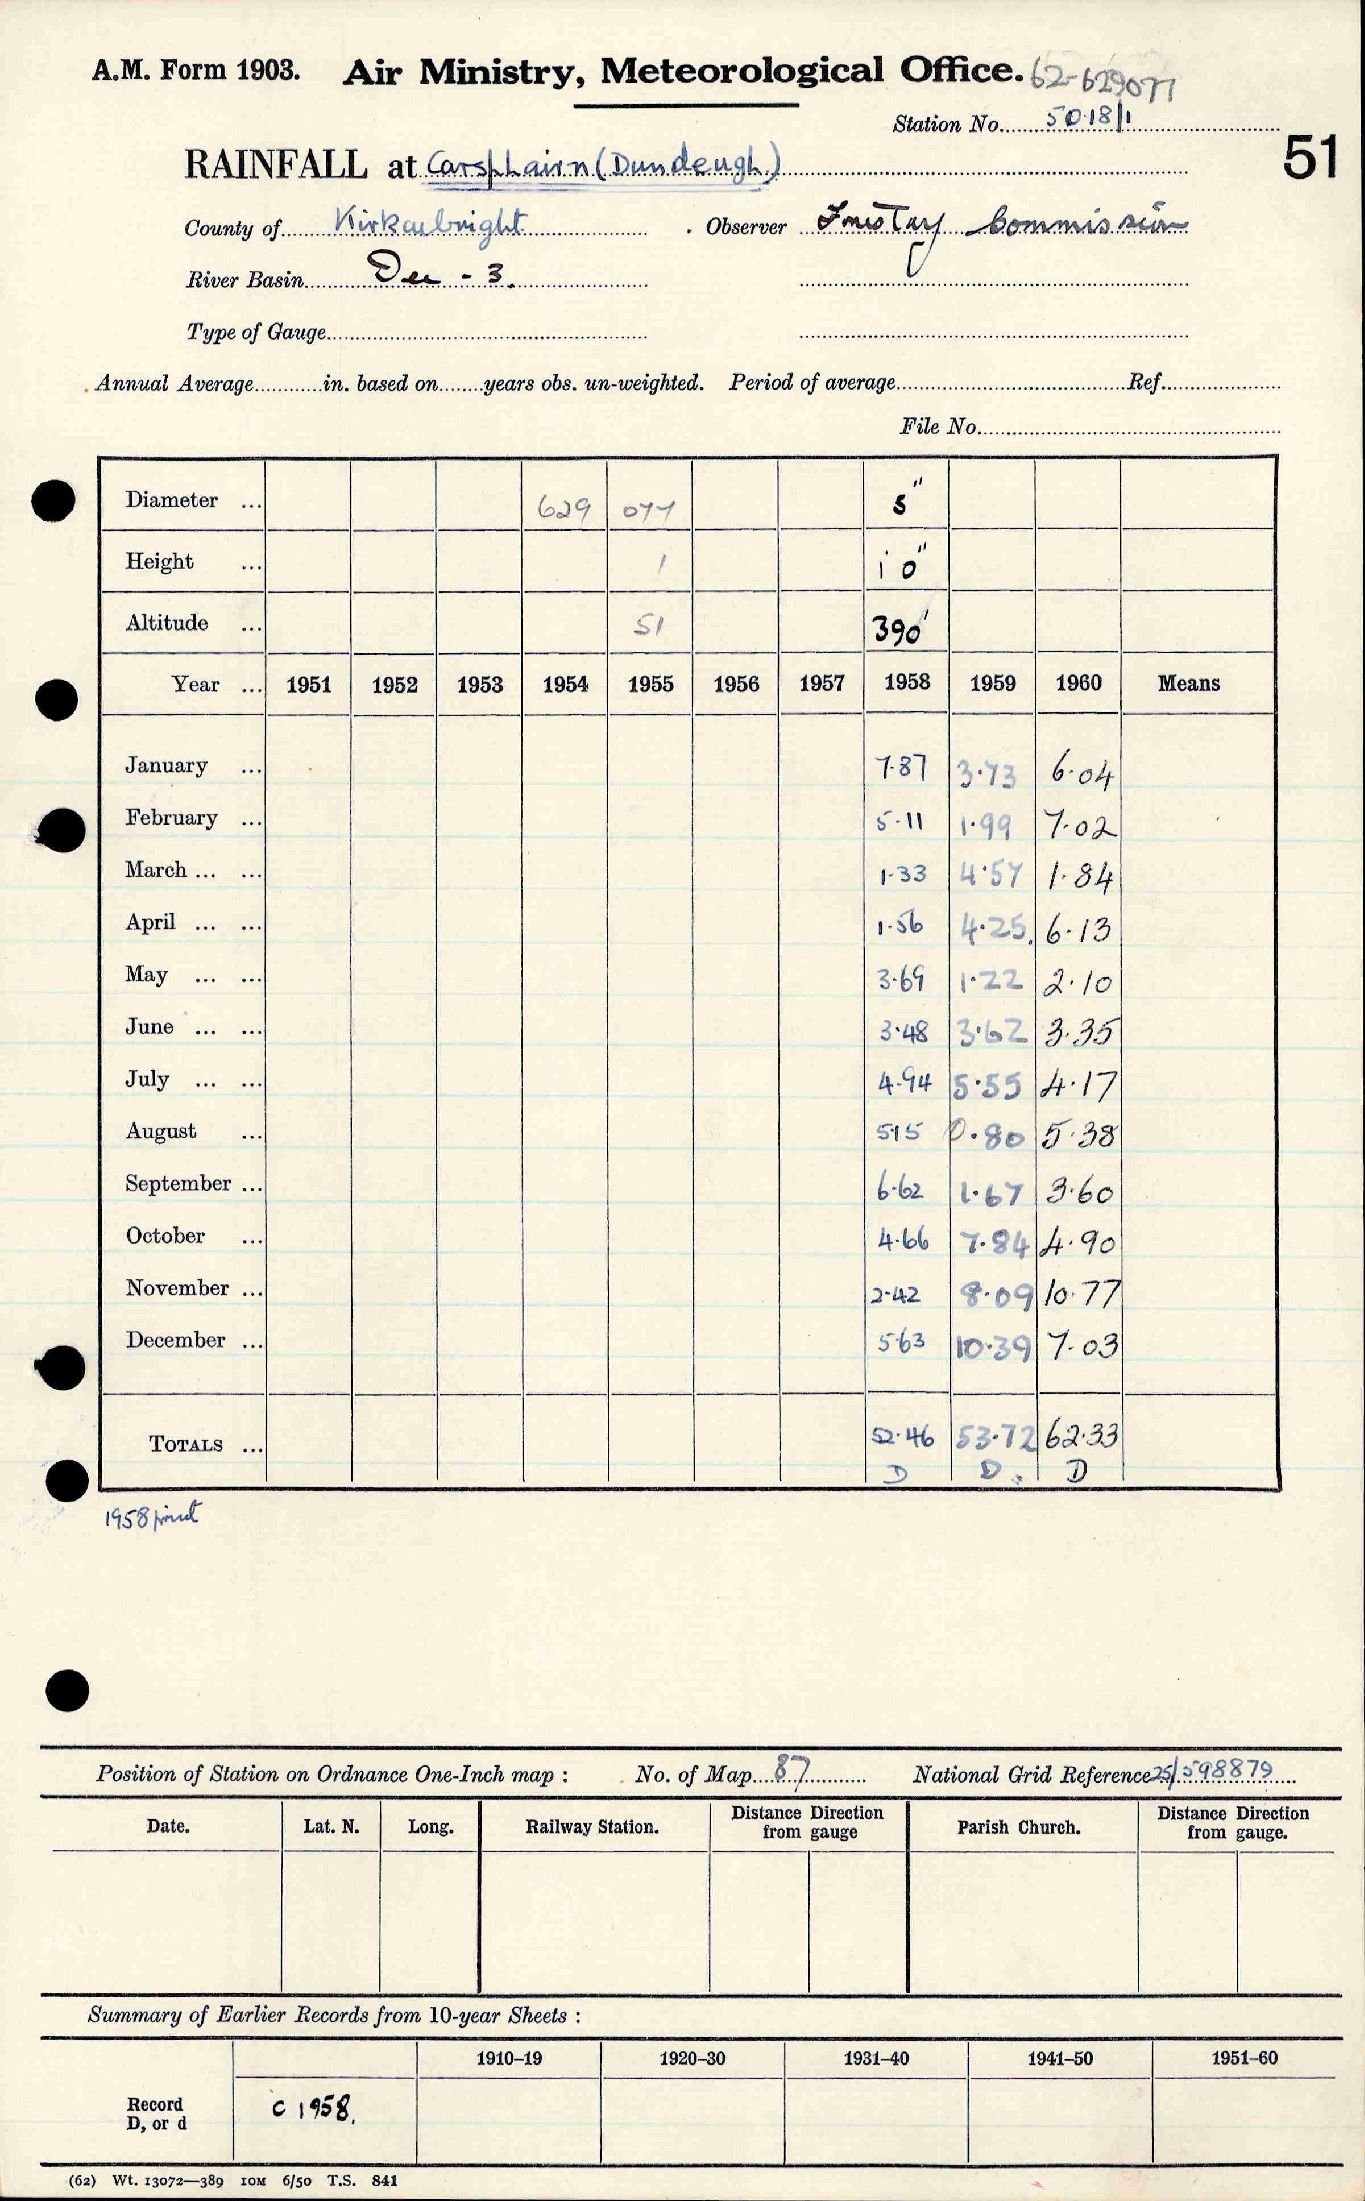 A.M. Form 1903. Air Ministry, Meteorological Office. 62-629077
Station No. 5018/1
51
RAINFALL at Carsphairn (Dundeugh)
County of Kirkcudbright . Observer Forestry Commission
River Basin Dee - 3.
Type of Gauge
Annual Average in. based on years obs. un-weighted. Period of average Ref.
File No.
Diameter ... 629 077 5"
Height ... 1 1' 0"
Altitude ... 51 390'
Year ... 1951 1952 1953 1954 1955 1956 1957 1958 1959 1960 Means
January ... 7.87 3.73 6.04
February ... 5.11 1.99 7.02
March ... ... 1.33 4.57 1.84
April ... ... 1.56 4.25 6.13
May ... ... 3.69 1.22 2.10
June ... ... 3.48 3.62 3.35
July ... ... 4.94 5.55 4.17
August ... 5.15 0.80 5.38
September ... 6.62 1.67 3.60
October ... 4.66 7.84 4.90
November ... 2.42 8.09 10.77
December ... 5.63 10.39 7.03
TOTALS ... 52.46 53.72 62.33
D D. D
1958 print
Position of Station on Ordnance One-Inch map : No. of Map 87 National Grid Reference 25/598879
Date. Lat. N. Long. Railway Station. Distance Direction from gauge Parish Church. Distance Direction from gauge.
Summary of Earlier Records from 10-year Sheets :
1910–19 1920–30 1931–40 1941–50 1951–60
Record D, or d C 1958.
(62) Wt. 13072—389 10M 6/50 T.S. 841